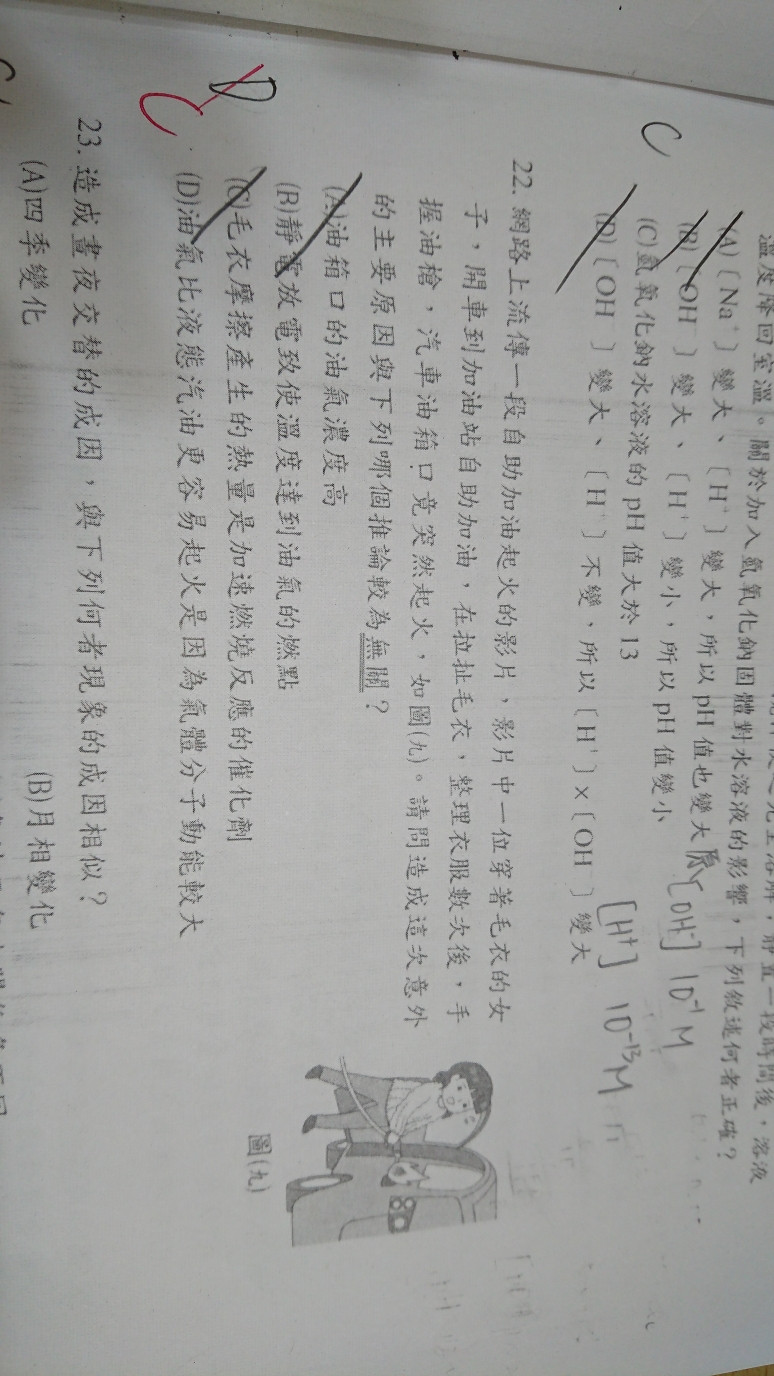 溫度降回室溫。關於加入氫氧化鈉固體對水溶液的影響，下列敘述何者正確？
C
(A)〔Na⁺〕變大、〔H⁺〕變大，所以pH值也變大
(B)〔OH⁻〕變大、〔H⁺〕變小，所以pH值變小
[OH⁻] 10⁻¹ M
(C)氫氧化鈉水溶液的pH值大於13
(D)〔OH⁻〕變大、〔H⁺〕不變，所以〔H⁺〕×〔OH⁻〕變大
[H⁺] 10⁻¹³ M
22. 網路上流傳一段自助加油起火的影片，影片中一位穿著毛衣的女
子，開車到加油站自助加油，在拉扯毛衣，整理衣服數次後，手
握油槍，汽車油箱口竟突然起火，如圖(九)。請問造成這次意外
的主要原因與下列哪個推論較為無關？
(A)油箱口的油氣濃度高
(B)靜電放電致使溫度達到油氣的燃點
D
C
(C)毛衣摩擦產生的熱量是加速燃燒反應的催化劑
(D)油氣比液態汽油更容易起火是因為氣體分子動能較大
圖(九)
23. 造成晝夜交替的成因，與下列何者現象的成因相似？
(A)四季變化
(B)月相變化